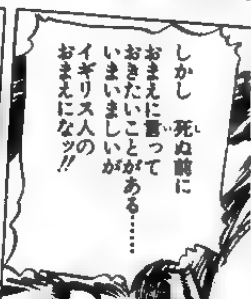 しかし　死ぬ前に
おまえに言って
おきたいことがある……
いまいましいが
イギリス人の
おまえになッ!!